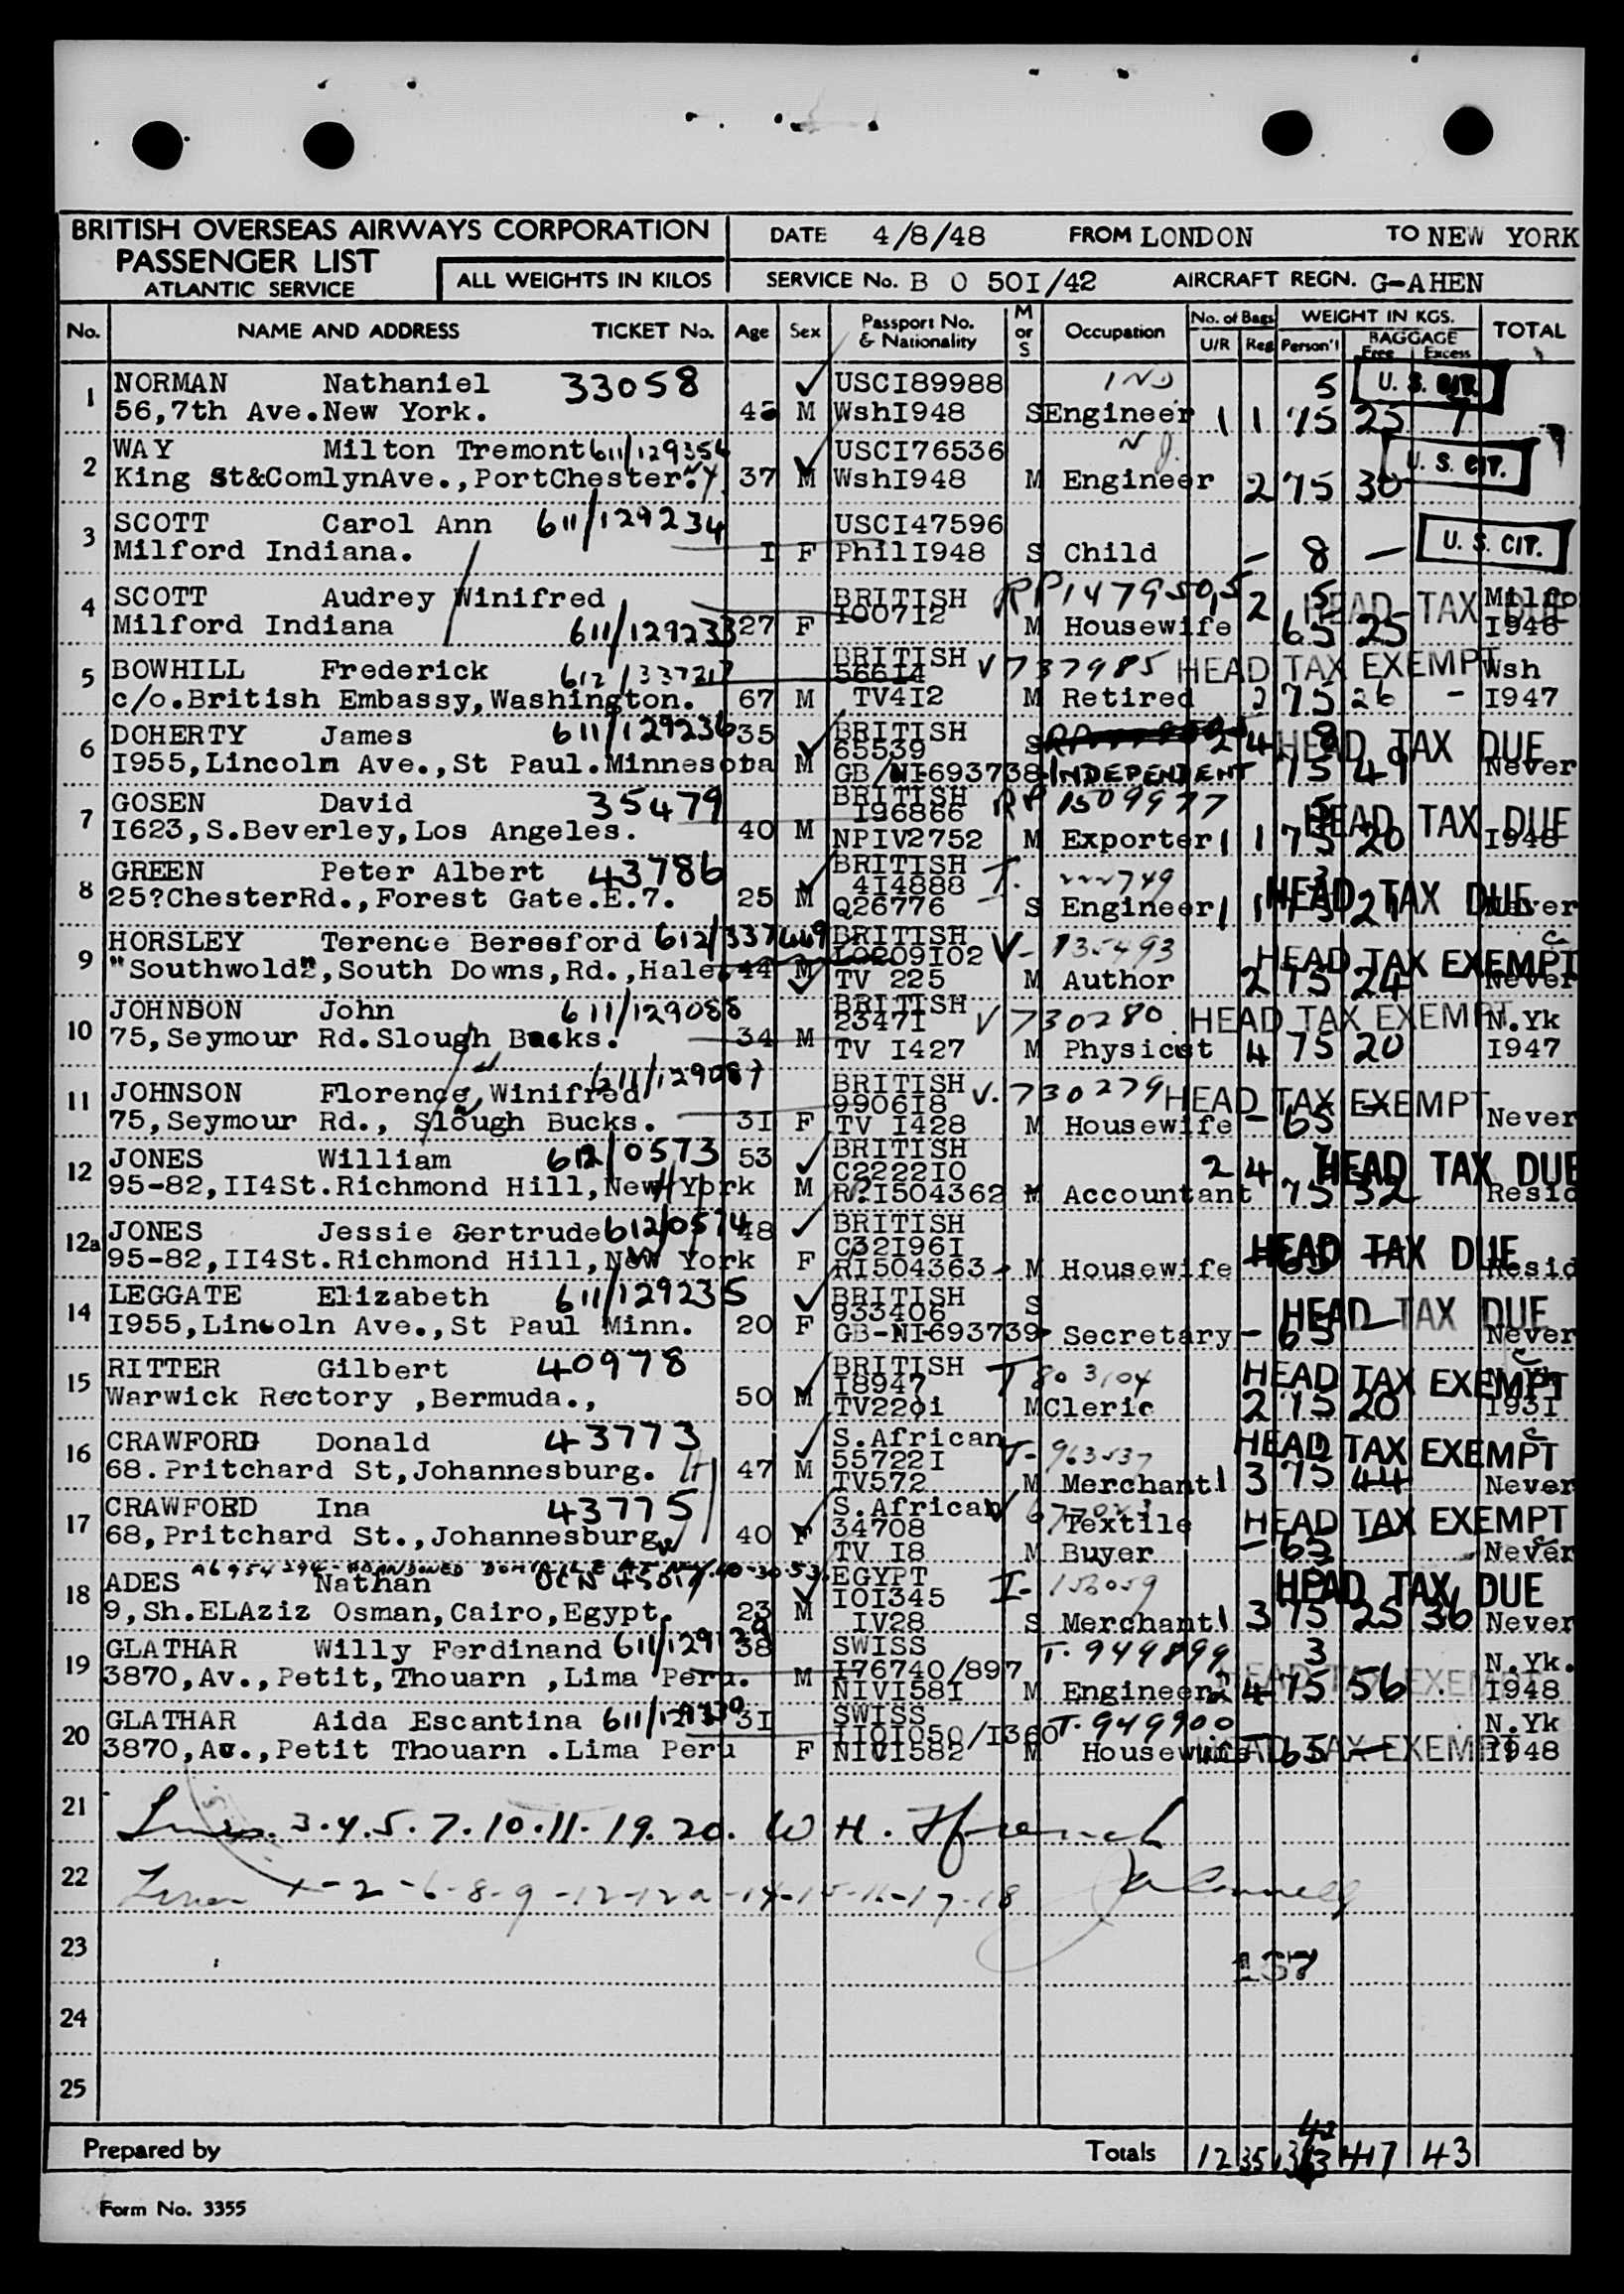 BRITISH OVERSEAS AIRWAYS CORPORATION
PASSENGER LIST
ATLANTIC SERVICE
ALL WEIGHTS IN KILOS
DATE 4/8/48 FROM LONDON TO NEW YORK
SERVICE No. B O 50I/42 AIRCRAFT REGN. G-AHEN
No. NAME AND ADDRESS TICKET No. Age Sex Passport No. & Nationality M or S Occupation No. of Bags U/R Reg WEIGHT IN KGS. Person'l BAGGAGE Free Excess TOTAL
1 NORMAN Nathaniel 33058 USCI89988 IND 5 U. S. CIT.
56,7th Ave.New York. M WshI948 S Engineer 1 1 75 25 7
2 WAY Milton Tremont 611/129354 USCI76536 U. S. CIT.
King St&ComlynAve.,PortChester.N.Y. 37 M WshI948 M Engineer 2 75 30
3 SCOTT Carol Ann 611/129234 USCI47596 U. S. CIT.
Milford Indiana. I F PhilI948 S Child - 8 -
4 SCOTT Audrey Winifred BRITISH I00712 RP1479505 2 5 HEAD TAX DUE
Milford Indiana 611/129233 27 F M Housewife 65 25 I948
5 BOWHILL Frederick 612/337217 BRITISH 566I4 V737985 HEAD TAX EXEMPT Wsh
c/o.British Embassy,Washington. 67 M TV4I2 M Retired 2 75 26 - I947
6 DOHERTY James 611/129236 35 BRITISH 65539 S 2 4 8 HEAD TAX DUE
I955,Lincoln Ave.,St Paul.Minnesota M GB/NI-693738 INDEPENDENT 75 49 Never
7 GOSEN David 35479 BRITISH I96866 RP 1509977 5 HEAD TAX DUE
I623,S.Beverley,Los Angeles. 40 M NPIV2752 M Exporter 1 1 75 20 I948
8 GREEN Peter Albert 43786 BRITISH 4I4888 T. HEAD TAX DUE
25?ChesterRd.,Forest Gate.E.7. 25 M Q26776 S Engineer 1 1 75 21 Never
9 HORSLEY Terence Beresford 612/337449 BRITISH L0209I02 V-735493 HEAD TAX EXEMPT
"Southwold",South Downs,Rd.,Hale. 44 M TV 225 M Author 2 75 24 Never
10 JOHNSON John 611/129088 BRITISH 2347I V730280 HEAD TAX EXEMPT N.Yk
75,Seymour Rd.Slough Bucks. 34 M TV I427 M Physicst 4 75 20 I947
11 JOHNSON Florence,Winifred 611/129087 BRITISH 9906I8 V.730279 HEAD TAX EXEMPT
75,Seymour Rd., Slough Bucks. 3I F TV I428 M Housewife - 65 Never
12 JONES William 612/0573 53 BRITISH C2222I0 2 4 7 HEAD TAX DUE
95-82,II4St.Richmond Hill,New York M R.I504362 M Accountant 75 32 Resid
12a JONES Jessie Gertrude 612/0574 48 BRITISH C32I96I HEAD TAX DUE
95-82,II4St.Richmond Hill,New York F RI504363 M Housewife - 65 - Resid
14 LEGGATE Elizabeth 611/129235 BRITISH 933406 S HEAD TAX DUE
I955,Lincoln Ave.,St Paul Minn. 20 F GB-NI-693739 Secretary - 65 - Never
15 RITTER Gilbert 40978 BRITISH I8947 T 803104 HEAD TAX EXEMPT
Warwick Rectory ,Bermuda., 50 M M Cleric 2 75 20 I93I
16 CRAWFORD Donald 43773 S.African 55722I T-963537 HEAD TAX EXEMPT
68.Pritchard St,Johannesburg. H 47 M TV572 M Merchant 1 3 75 44 Never
17 CRAWFORD Ina 43775 S.African 34708 Textile HEAD TAX EXEMPT
68,Pritchard St.,Johannesburg. W 40 F TV I8 M Buyer - 65 Never
A6954294-ABANDONED DOMICILE AT NY.10-30-53.
18 ADES Nathan EGYPT I0I345 I- 156059 HEAD TAX DUE
9,Sh.ELAziz Osman,Cairo,Egypt. 23 M IV28 S Merchant 1 3 75 25 36 Never
19 GLATHAR Willy Ferdinand 38 SWISS I76740/897 T.949899 3 HEAD TAX EXEMPT N.Yk.
3870,Av.,Petit,Thouarn ,Lima Peru. M NIVI58I M Engineer 2 4 75 56 I948
20 GLATHAR Aida Escantina 3I SWISS II0I050/I360 T.949900 HEAD TAX EXEMPT N.Yk
3870,Av.,Petit Thouarn .Lima Peru F NIVI582 M Housewife - 65 - I948
21 Lines. 3.4.5.7.10.11.19.20. W H. Ffrench
22 Lines 1-2-6-8-9-12-12a-14-15-16-17-18
23
24
25
Prepared by Totals 12 35 417 43
Form No. 3355